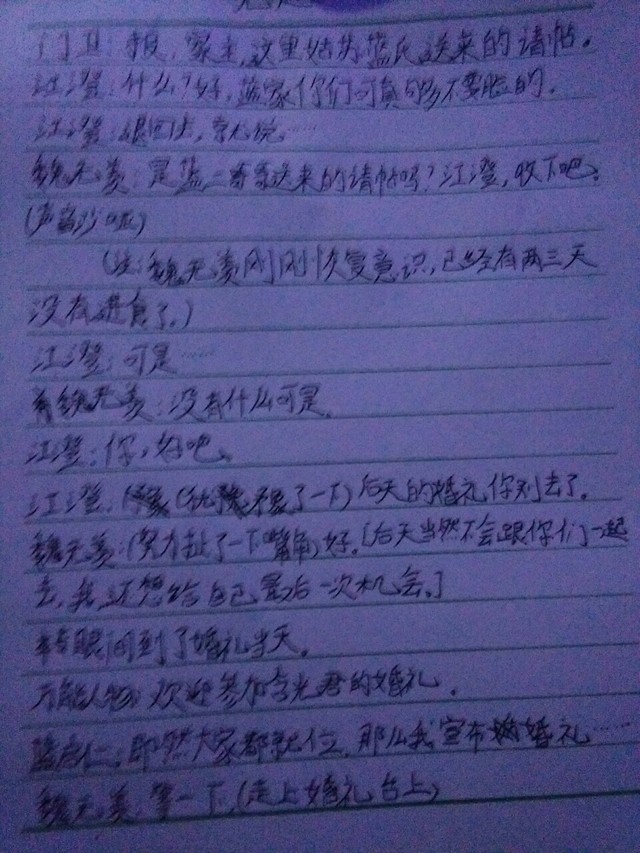 门卫:报,家主,这里姑苏蓝氏送来的请帖。
江澄:什么?好,蓝家你们可真够不要脸的。
江澄:退回去,就说……
魏无羡:是蓝二哥哥送来的请帖吗?江澄,收下吧。
(声音沙哑)
(注:魏无羡刚刚恢复意识,已经有两三天
没有进食了。)
江澄:可是……
魏无羡:没有什么可是。
江澄:你,好吧。
江澄:(犹豫了一下)后天的婚礼你别去了。
魏无羡:(努力扯了一下嘴角)好。[后天当然不会跟你们一起
去,我还想给自己最后一次机会。]
转眼间到了婚礼当天。
万能人物:欢迎参加含光君的婚礼。
蓝启仁:即然大家都就位,那么我宣布婚礼……
魏无羡:等一下,(走上婚礼台上)